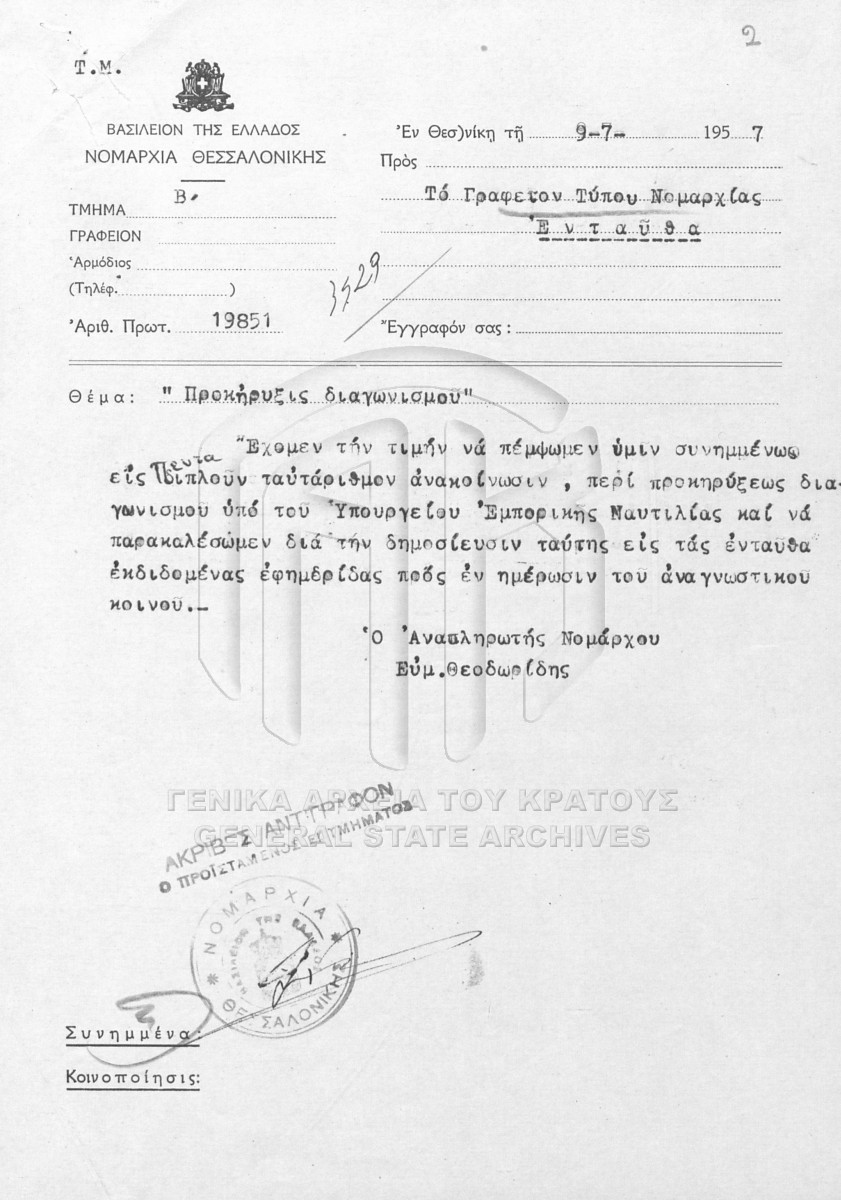 2
Τ.Μ.
ΒΑΣΙΛΕΙΟΝ ΤΗΣ ΕΛΛΑΔΟΣ
ΝΟΜΑΡΧΙΑ ΘΕΣΣΑΛΟΝΙΚΗΣ
ΤΜΗΜΑ Β.
ΓΡΑΦΕΙΟΝ
Ἁρμόδιος
(Τηλέφ. )
Ἀριθ. Πρωτ. 19851
3529
Ἐν Θεσ)νίκη τῇ 9-7- 195 7
Πρὸς
Τό Γραφεῖον Τύπου Νομαρχίας
Ἐνταῦθα
Ἔγγραφόν σας :
Θέμα: " Προκήρυξις διαγωνισμοῦ"
Ἔχομεν τήν τιμήν νά πέμψωμεν ὑμιν συνημμένως
εἰς Πεντα διπλοῦν ταὐτάριθμον ἀνακοίνωσιν , περί προκηρύξεως δια-
γωνισμοῦ ὑπό του Ὑπουργείου Ἐμπορικῆς Ναυτιλίας καί νά
παρακαλέσωμεν διά τήν δημοσίευσιν ταύτης εἰς τάς ἐνταυθα
ἐκδιδομένας ἐφημερίδας πρός ἐν ημέρωσιν του ἀναγνωστικοῦ
κοινοῦ.-
Ὁ Ἀναπληρωτής Νομάρχου
Εὐμ.Θεοδωρίδης
ΓΕΝΙΚΑ ΑΡΧΕΙΑ ΤΟΥ ΚΡΑΤΟΥΣ
GENERAL STATE ARCHIVES
ΑΚΡΙΒΕΣ ΑΝΤΙΓΡΑΦΟΝ
Ο ΠΡΟΪΣΤΑΜΕΝΟΣ ΤΜΗΜΑΤΟΣ
ΝΟΜΑΡΧΙΑ ΘΕΣΣΑΛΟΝΙΚΗΣ
ΒΑΣΙΛΕΙΟΝ ΤΗΣ ΕΛΛΑΔΟΣ
Συνημμένα:
Κοινοποίησις: